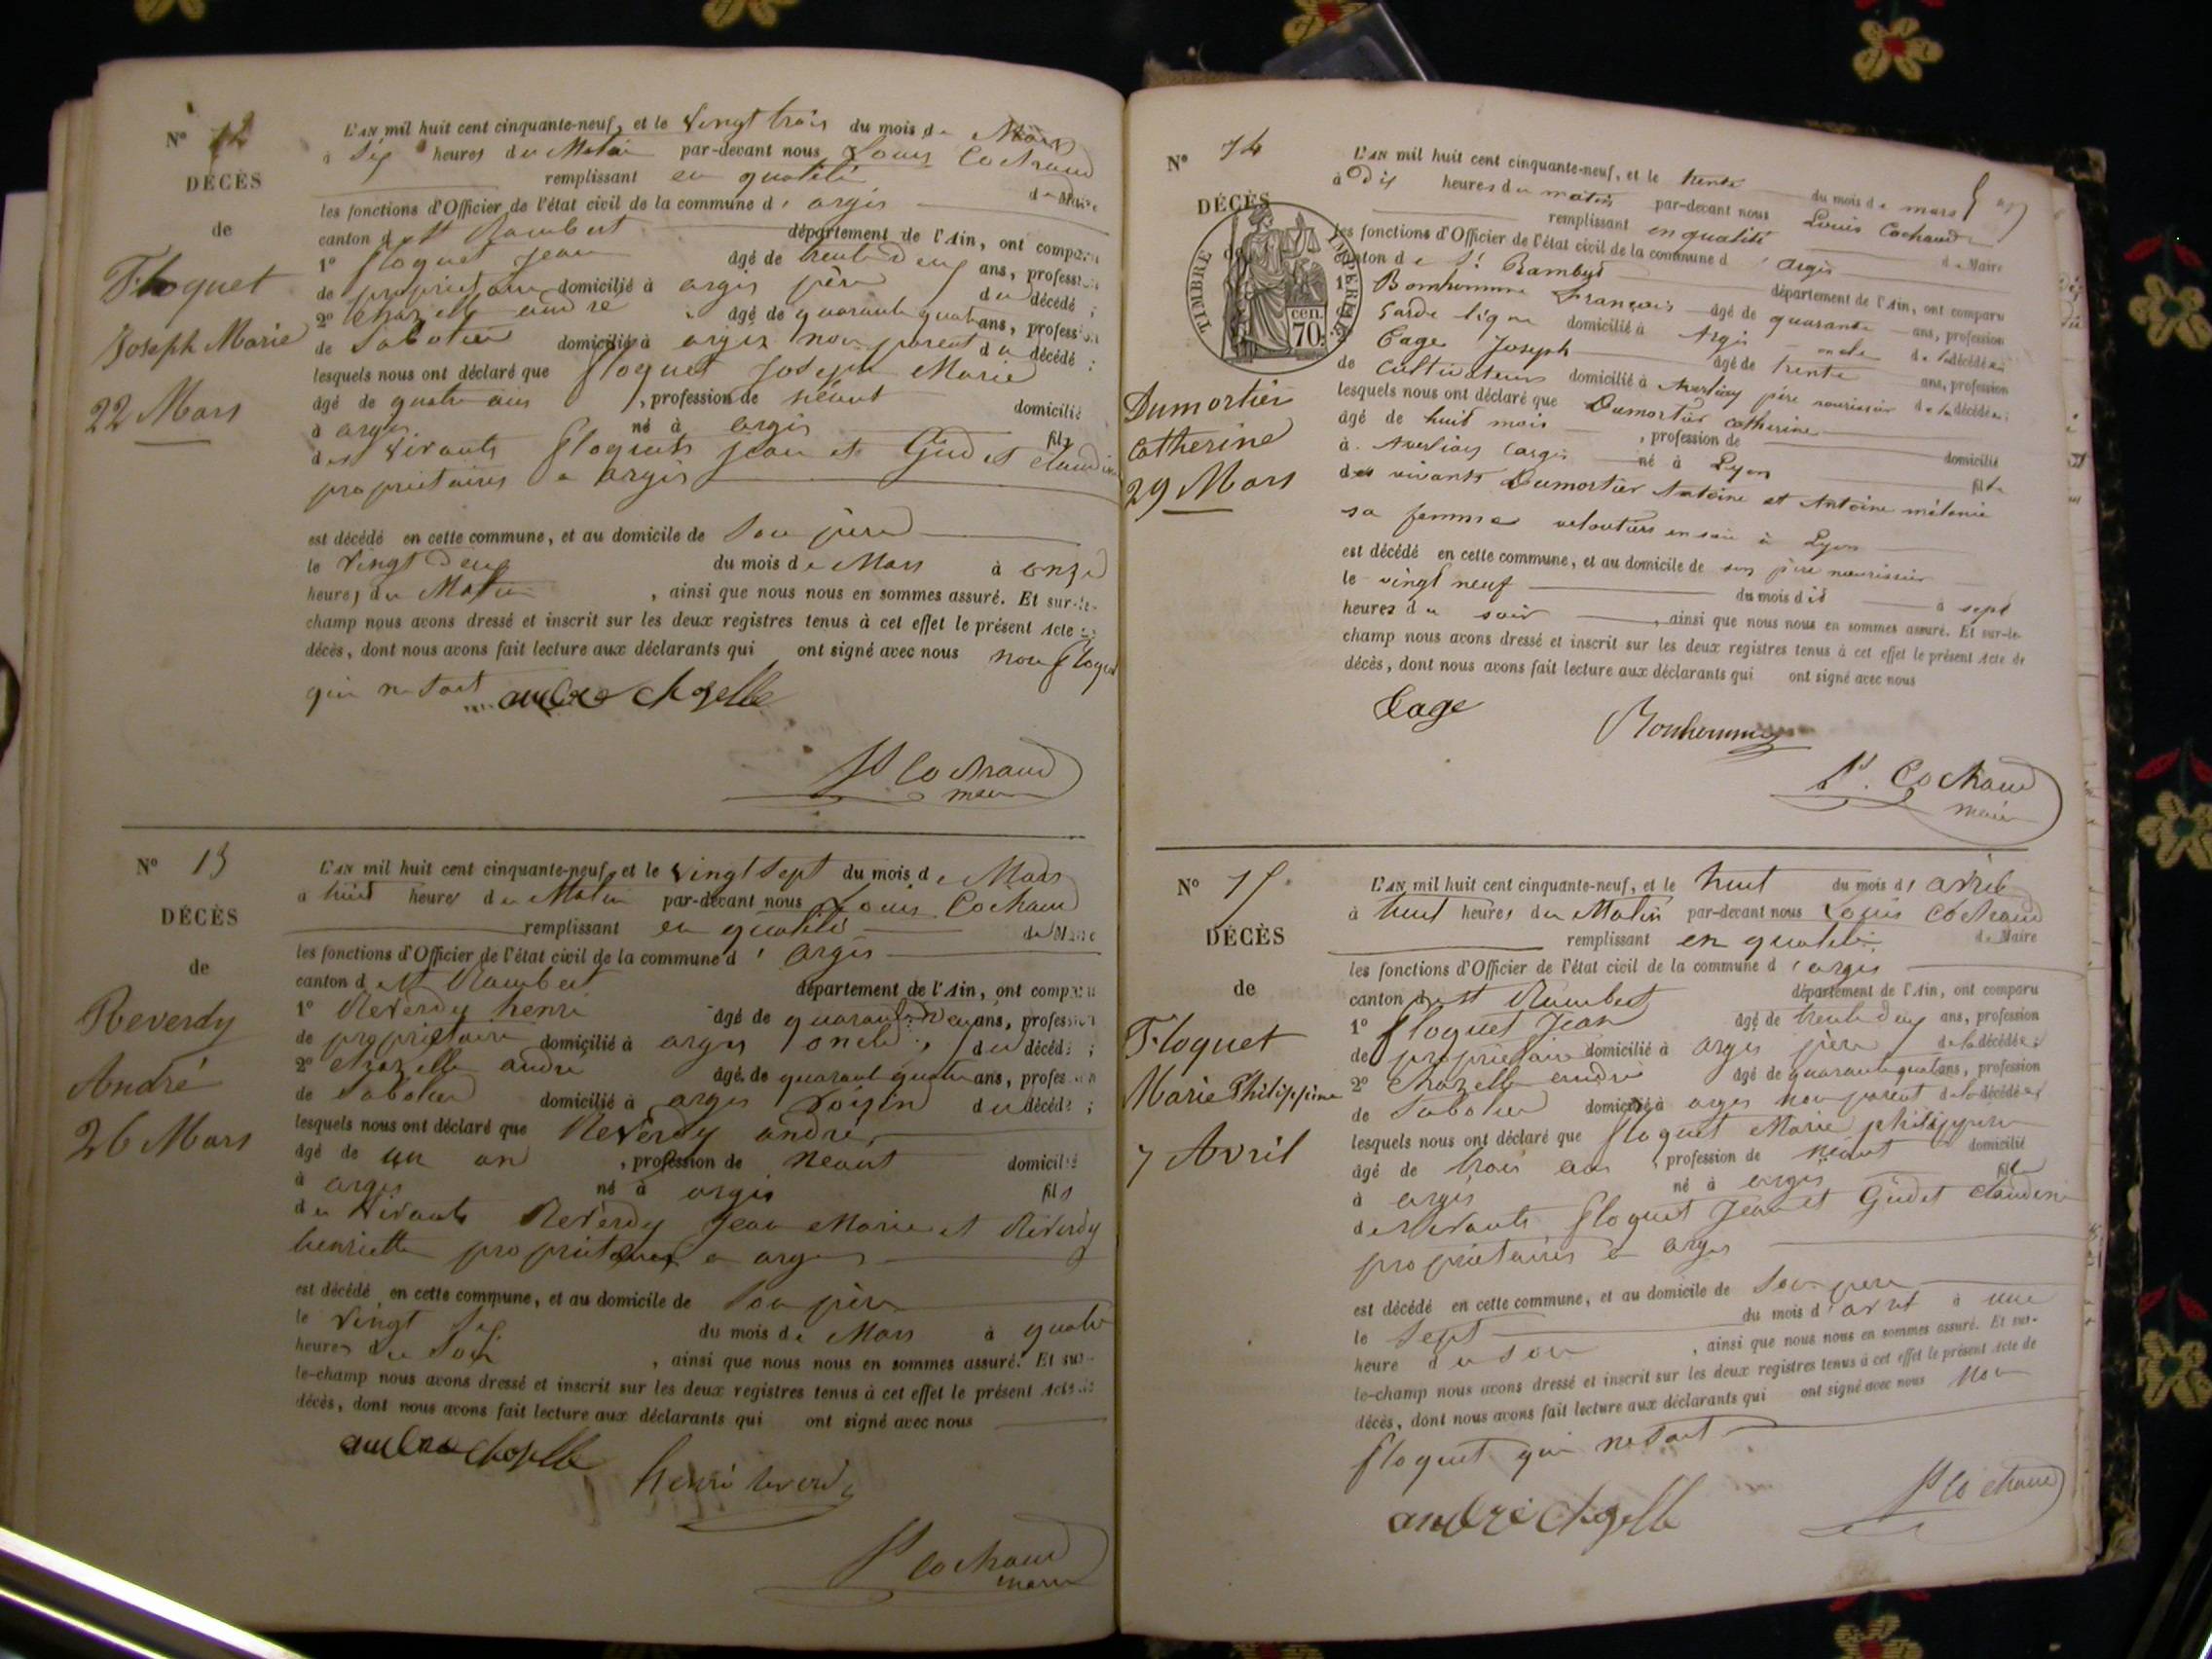 N° 12
DÉCÈS
de
Floquet
Joseph Marie
22 Mars
L'AN mil huit cent cinquante-neuf, et le Vingt trois du mois de Mars
à Six heures du Matin par-devant nous Louis Cochaud
remplissant en qualité de Maire
les fonctions d'Officier de l'état civil de la commune d'argis
canton de St Rambert département de l'Ain, ont comparu
1° floquet jean âgé de trente deux ans, profession
de propriétaire domicilié à argis père du décédé ;
2° Chazelle andré âgé de quarante quatre ans, profession
de Sabotier domicilié à argis non parent du décédé ;
lesquels nous ont déclaré que floquet Joseph Marie
âgé de quatre ans, profession de néant domicilié
à argis né à argis fils
des vivants floquet jean et Gudet claudine
propriétaires a argis
est décédé en cette commune, et au domicile de Son père
le Vingt deux du mois de Mars à onze
heures du Matin, ainsi que nous nous en sommes assuré. Et sur-le-
champ nous avons dressé et inscrit sur les deux registres tenus à cet effet le présent Acte de
décès, dont nous avons fait lecture aux déclarants qui ont signé avec nous non floquet
qui ne sait
andré chazelle
Ls Cochaud
maire
N° 13
DÉCÈS
de
Reverdy
André
26 Mars
L'AN mil huit cent cinquante-neuf, et le Vingt Sept du mois de Mars
à huit heures du Matin par-devant nous Louis Cochaud
remplissant en qualité de Maire
les fonctions d'Officier de l'état civil de la commune d'argis
canton de St Rambert département de l'Ain, ont comparu
1° Reverdy henri âgé de quarante deux ans, profession
de propriétaire domicilié à argis oncle du décédé ;
2° Chazelle andré âgé de quarante quatre ans, profession
de Sabotier domicilié à argis voisin du décédé ;
lesquels nous ont déclaré que Reverdy andré
âgé de un an, profession de néant domicilié
à argis né à argis fils
des Vivants Reverdy Jean Marie et Reverdy
henriette propriétaires a argis
est décédé en cette commune, et au domicile de Son père
le Vingt Six du mois de Mars à quatre
heures du Soir, ainsi que nous nous en sommes assuré. Et sur-
le-champ nous avons dressé et inscrit sur les deux registres tenus à cet effet le présent Acte de
décès, dont nous avons fait lecture aux déclarants qui ont signé avec nous
andré chazelle
henri reverdy
Ls Cochaud
maire
N° 14
DÉCÈS
de
TIMBRE IMPERIAL
70 cen.
Dumortier
Catherine
29 Mars
L'AN mil huit cent cinquante-neuf, et le trente du mois de mars
à dix heures du matin par-devant nous Louis Cochaud
remplissant en qualité de Maire
les fonctions d'Officier de l'état civil de la commune d'argis
canton de St Rambert département de l'Ain, ont comparu
1° Bonhomme François âgé de quarante ans, profession
Garde ligne domicilié à Argis oncle de la décédée
Cage Joseph âgé de trente ans, profession
de Cultivateur domicilié à Averliaz père nourissier de la décédée ;
lesquels nous ont déclaré que Dumortier Catherine
âgé de huit mois, profession de domicilié
à Averliaz (argis né à Lyon fille
des vivants Dumortier Antoine et Antoine mélanie
sa femme veloutiers en soie à Lyon
est décédé en cette commune, et au domicile de son père nourissier
le vingt neuf du mois dit à sept
heures du soir, ainsi que nous nous en sommes assuré. Et sur-le-
champ nous avons dressé et inscrit sur les deux registres tenus à cet effet le présent Acte de
décès, dont nous avons fait lecture aux déclarants qui ont signé avec nous
Cage
Bonhomme
Ls Cochaud
maire
N° 15
DÉCÈS
de
Floquet
Marie Philippine
7 Avril
L'AN mil huit cent cinquante-neuf, et le huit du mois d'avril
à huit heures du Matin par-devant nous Louis Cochaud
remplissant en qualité de Maire
les fonctions d'Officier de l'état civil de la commune d'argis
canton de St Rambert département de l'Ain, ont comparu
1° floquet Jean âgé de trente deux ans, profession
de propriétaire domicilié à argis père de la décédée ;
2° Chazelle andré âgé de quarante quatre ans, profession
de Sabotier domicilié à argis non parent de la décédée ;
lesquels nous ont déclaré que floquet Marie philippine
âgé de trois ans, profession de néant domicilié
à argis né à argis fille
des Vivants floquet Jean et Gudet claudine
propriétaires a argis
est décédé en cette commune, et au domicile de Son père
le Sept du mois d'avril à une
heure du soir, ainsi que nous nous en sommes assuré. Et sur-
le-champ nous avons dressé et inscrit sur les deux registres tenus à cet effet le présent Acte de
décès, dont nous avons fait lecture aux déclarants qui ont signé avec nous Non
floquet qui ne sait
andré chazelle
Ls Cochaud